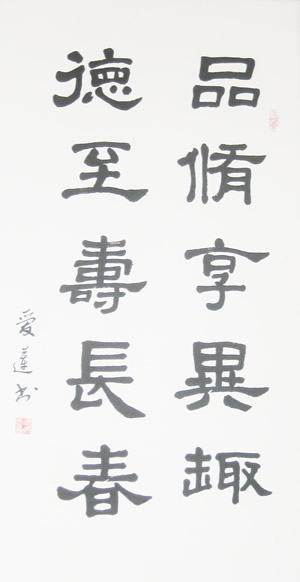 品脩享異趣
德至壽長春
爱蓮书